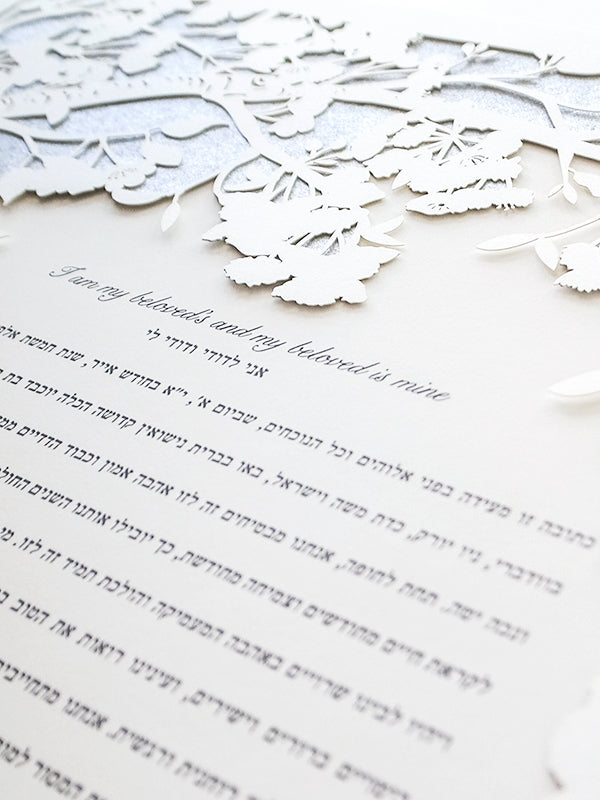 I am my beloved's and my beloved is mine
אני לדודי ודודי לי
כתובה זו מעידה בפני אלוהים וכל הנוכחים, שביום א', י"א בחודש אייר, שנת חמשת אלפ
בוודברי, ניו יורק, כדת משה וישראל, באו בברית נישואין קדושה הכלה יוכבד בת
ונבה יפה. תחת לחופה, אנחנו מבטיחים זה לזו אהבה אמון וכבוד הדדיים
לקראת חיים מחודשים וצמיחה מחודשת, כך יובילו אותנו השנים
ויהיו לבינו שרויים באהבה המעמיקה והולכת תמיד זה לזו.
לישויים ברורים וישירים, ועינינו רואות את הטוב
רוחנית ורגשית. אנחנו מתחייבים
המסור